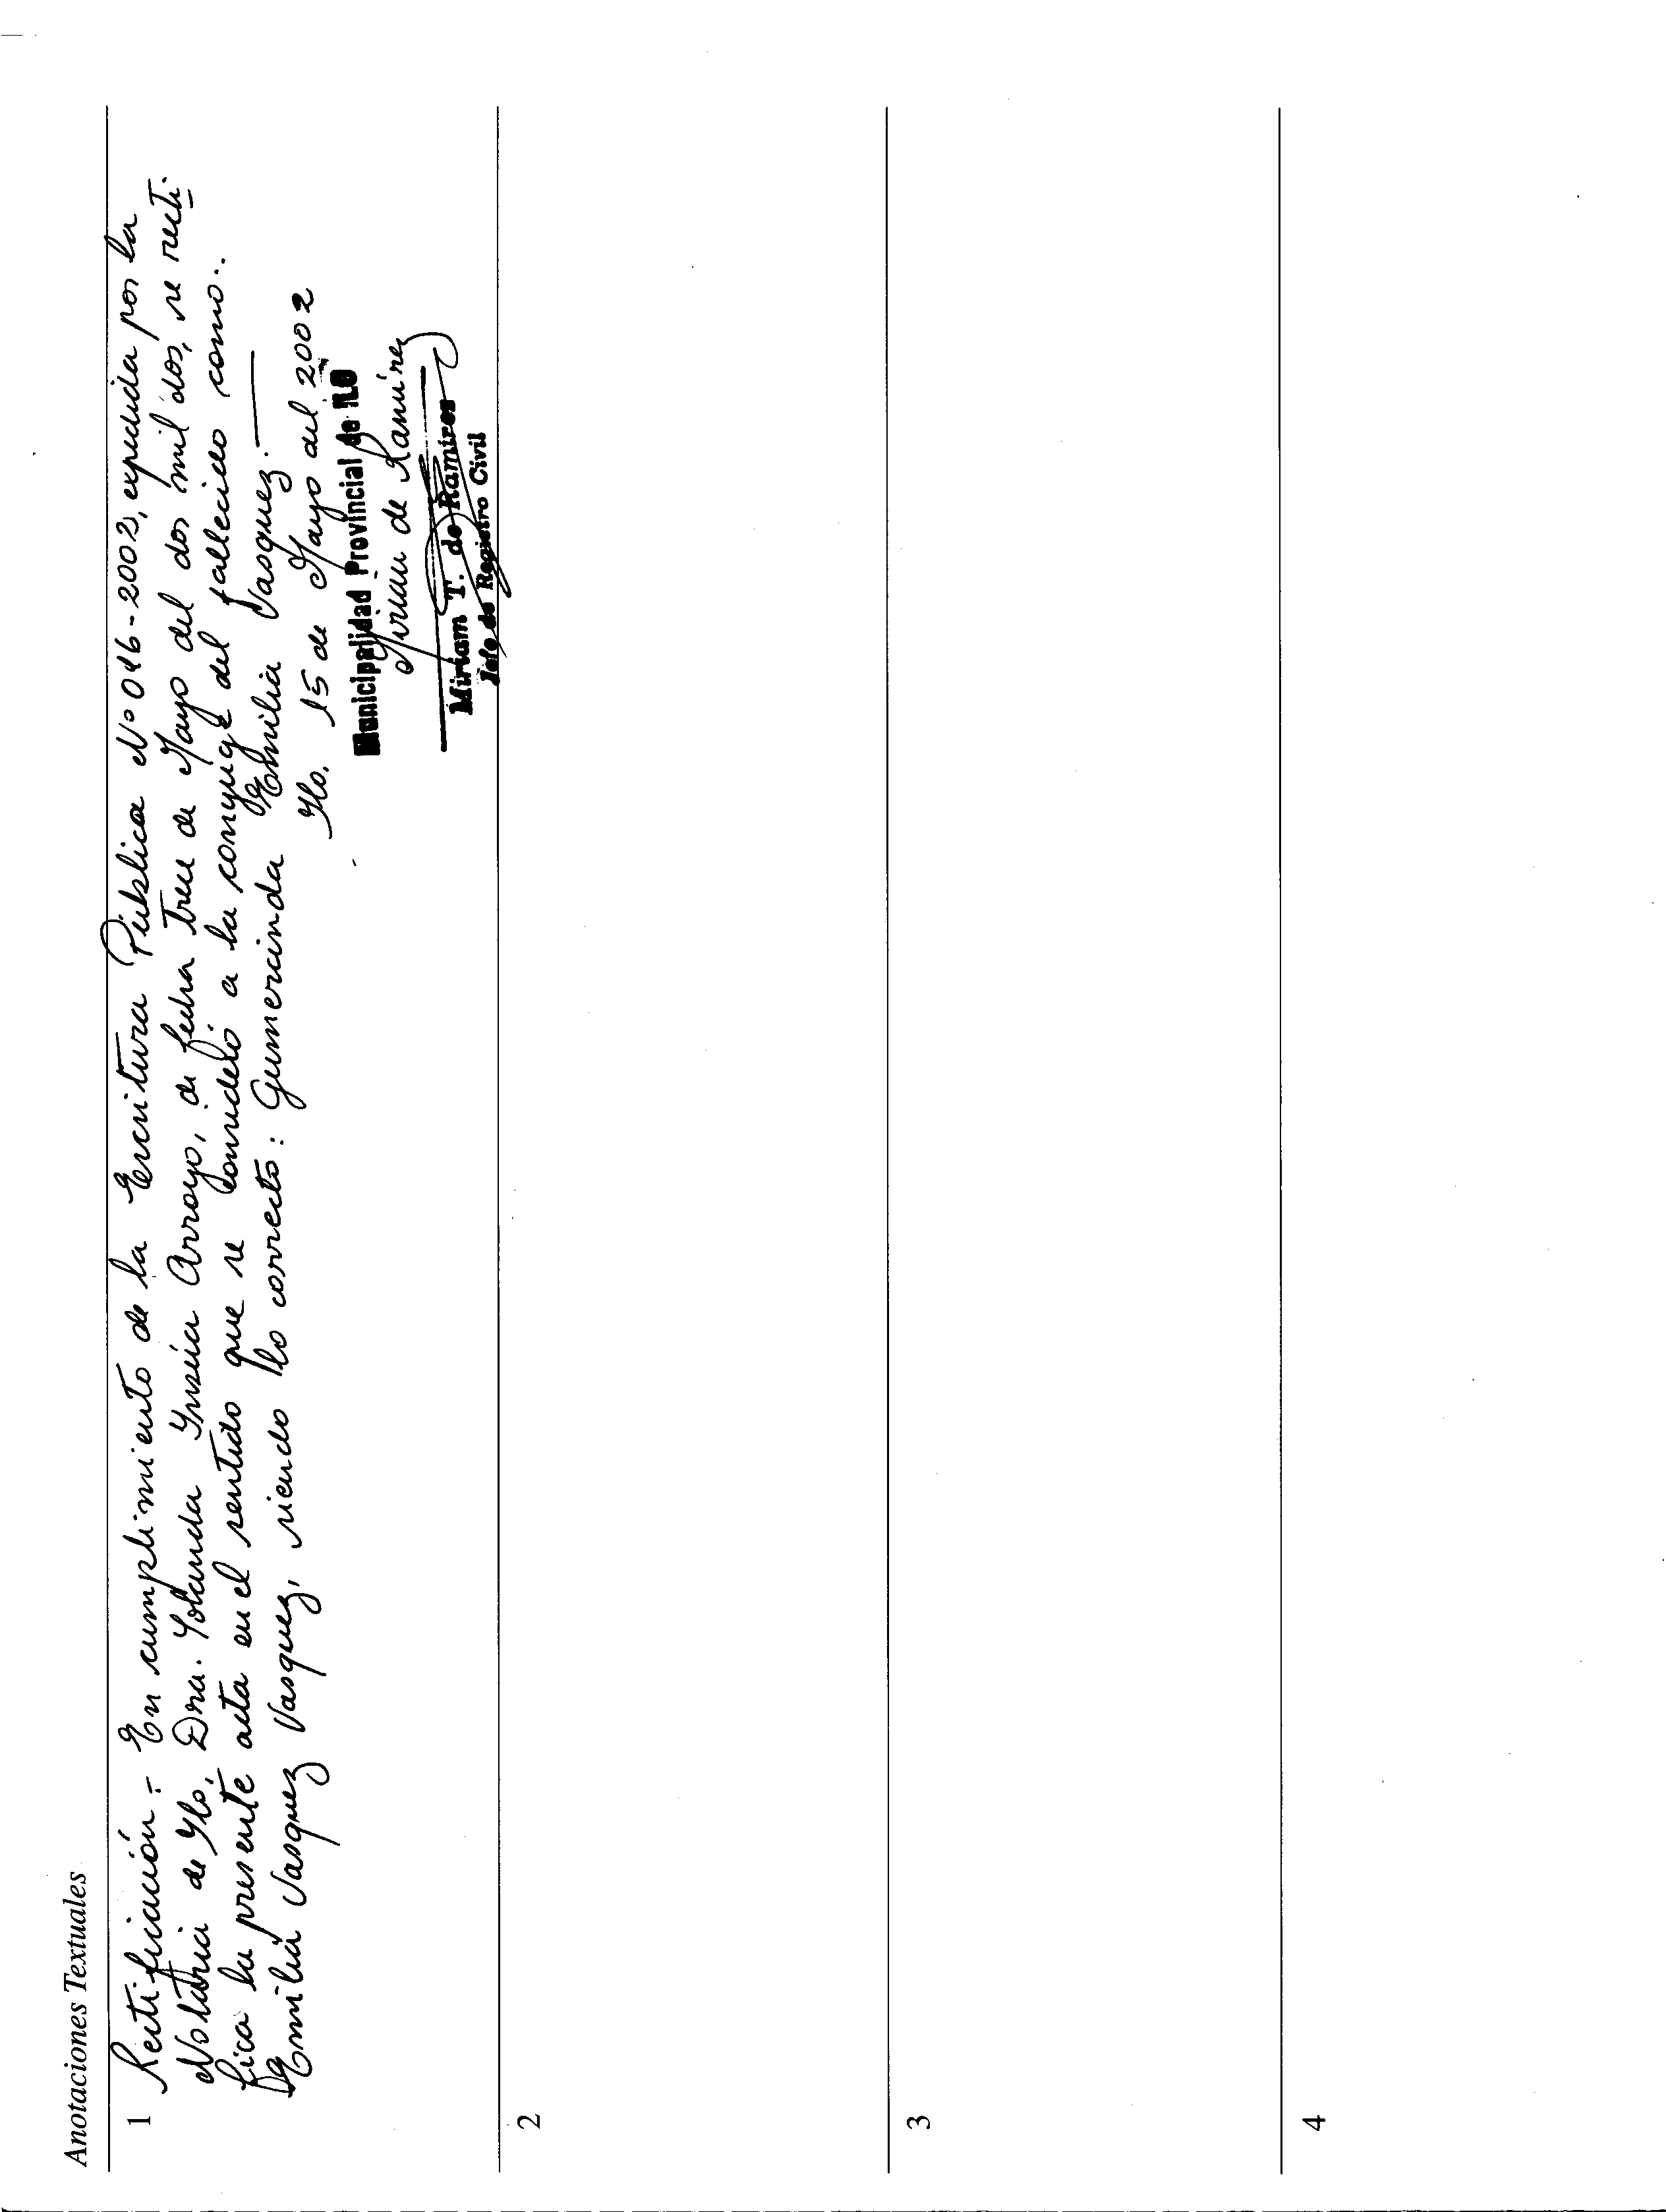 Anotaciones Textuales
1 Rectificación.- En cumplimiento de la Escritura Pública Nº 016-2002, expedida por la
Notaria de Ylo, Dra. Yolanda Insúa Arroyo, de fecha Trece de Mayo del dos mil dos, se recti-
fica la presente acta en el sentido que se consideró a la conyuge del fallecido como..
Emilia Vasquez Vasquez, siendo lo correcto: Gumercinda Emilia Vasquez.
Ylo. 15 de Mayo del 2002
Municipalidad Provincial de ILO
Miriam de Ramírez
Miriam T. de Ramirez
Jefe de Registro Civil
2
3
4